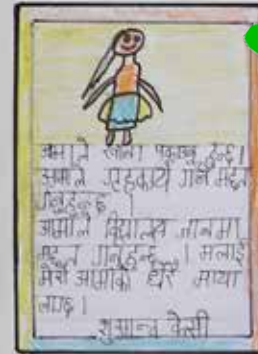 आमाले खाना पकाउनु हुन्छ।
आमाले गृहकार्य गर्न मद्दत
गर्नुहुन्छ ।
आमाले विद्यालय जानमा
मद्दत गर्नुहुन्छ । मलाई
मेरो आमाको धेरै माया
लाग्छ।
सुशान्त